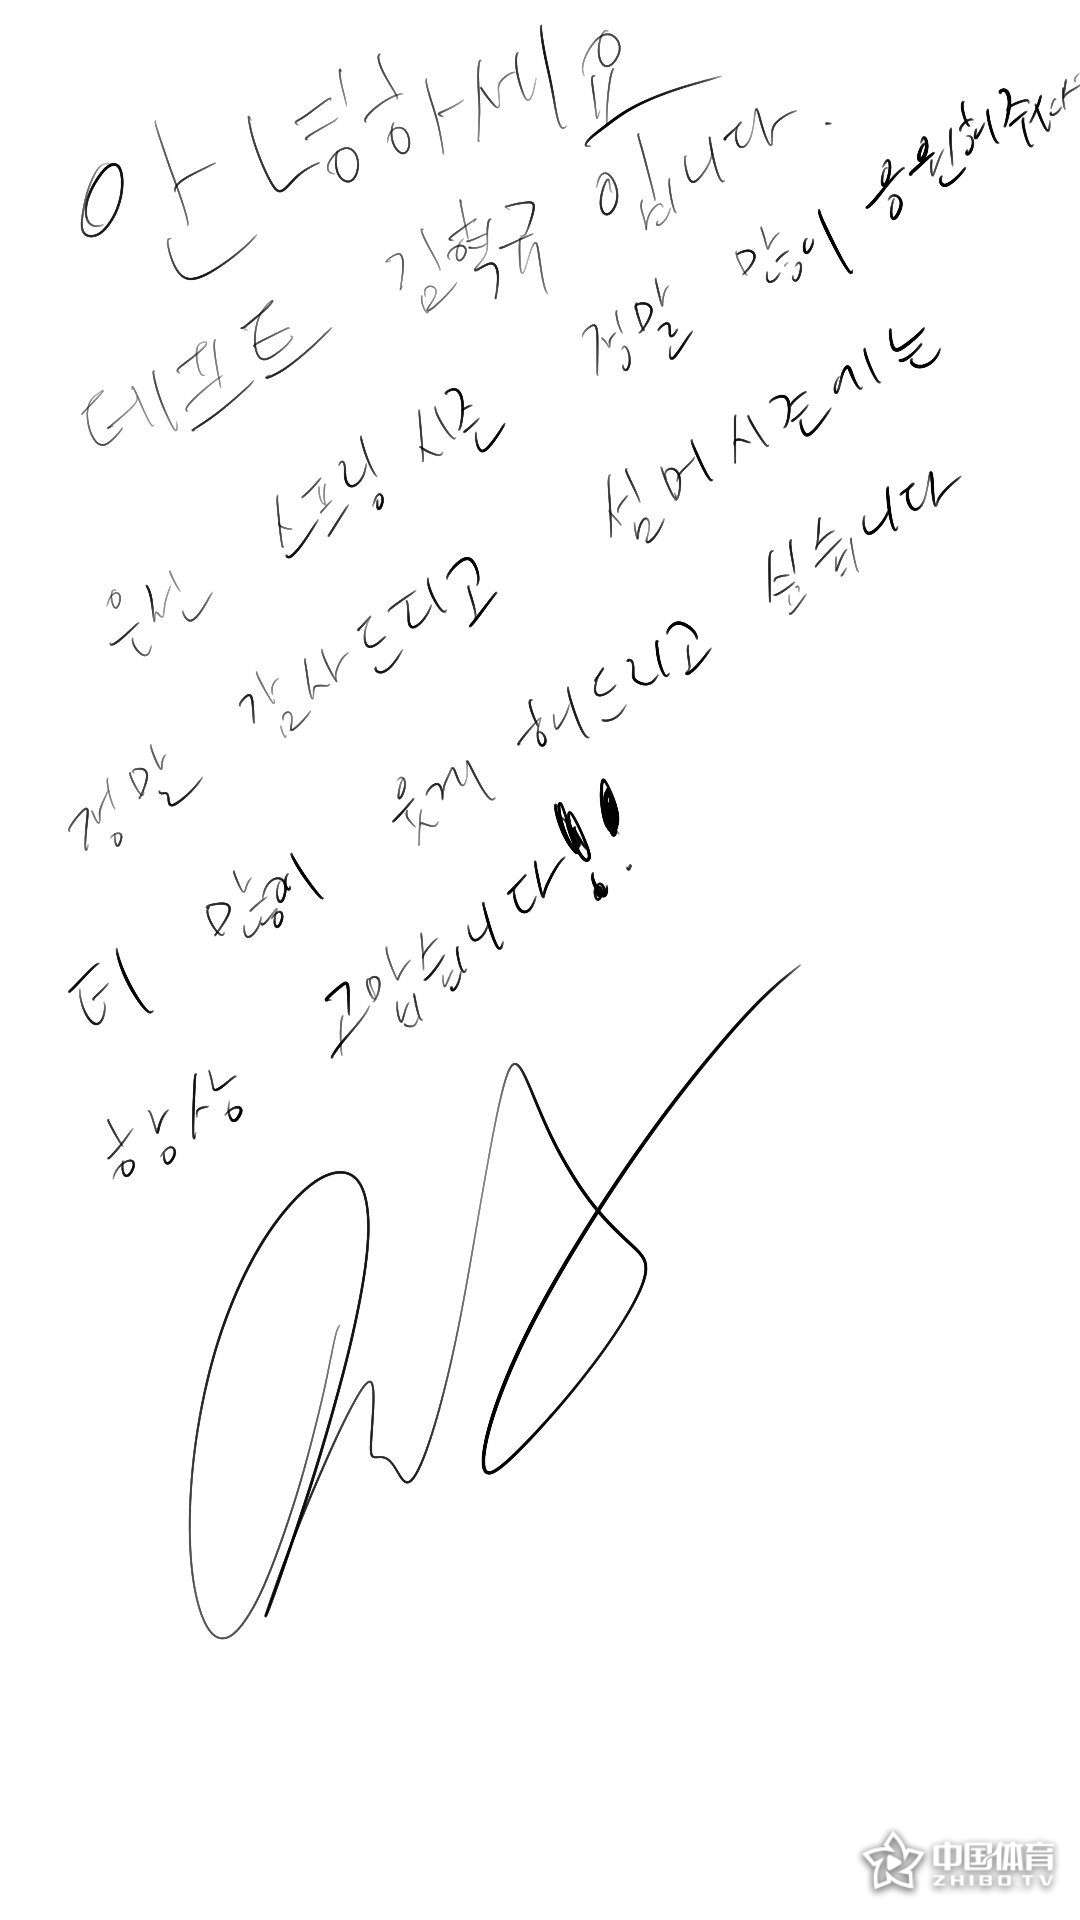 안녕하세요
데프트 김혁규 입니다.
스프링 시즌 정말 많이 응원해주
정말 감사드리고 섬머시즌에는
더 많이 웃게 해드리고 싶습니다
항상 고맙습니다!!
中国体育
ZHIBO.TV